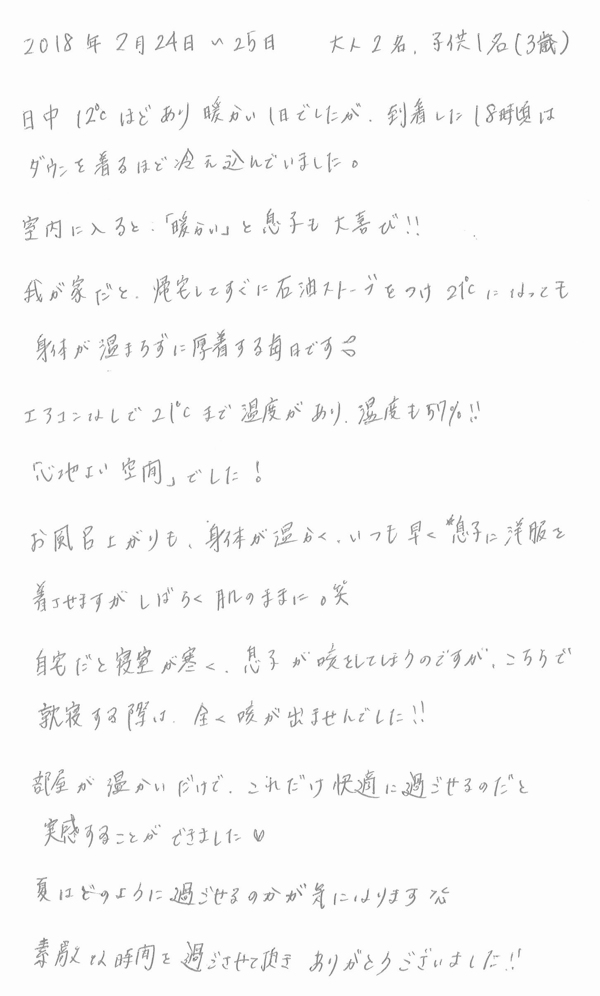 2018年2月24日〜25日 大人2名、子供1名(3歳)
日中12℃ほどあり暖かい1日でしたが、到着した18時頃は
ダウンを着るほど冷え込んでいました。
室内に入ると、「暖かい」と息子も大喜び!!
我が家だと、帰宅してすぐに石油ストーブをつけ21℃になっても
身体が温まらずに厚着する毎日です
エアコンなしで21℃まで温度があり、湿度も57%!!
「心地よい空間」でした!
お風呂上がりも、身体が温かく、いつも早く息子に洋服を
着させますがしばらく肌のままに。笑
自宅だと寝室が寒く、息子が咳をしてしまうのですが、こちらで
就寝する際は、全く咳が出ませんでした!!
部屋が温かいだけで、これだけ快適に過ごせるのだと
実感することができました♡
夏はどのように過ごせるのかが気になります
素敵な時間を過ごさせて頂きありがとうございました!!